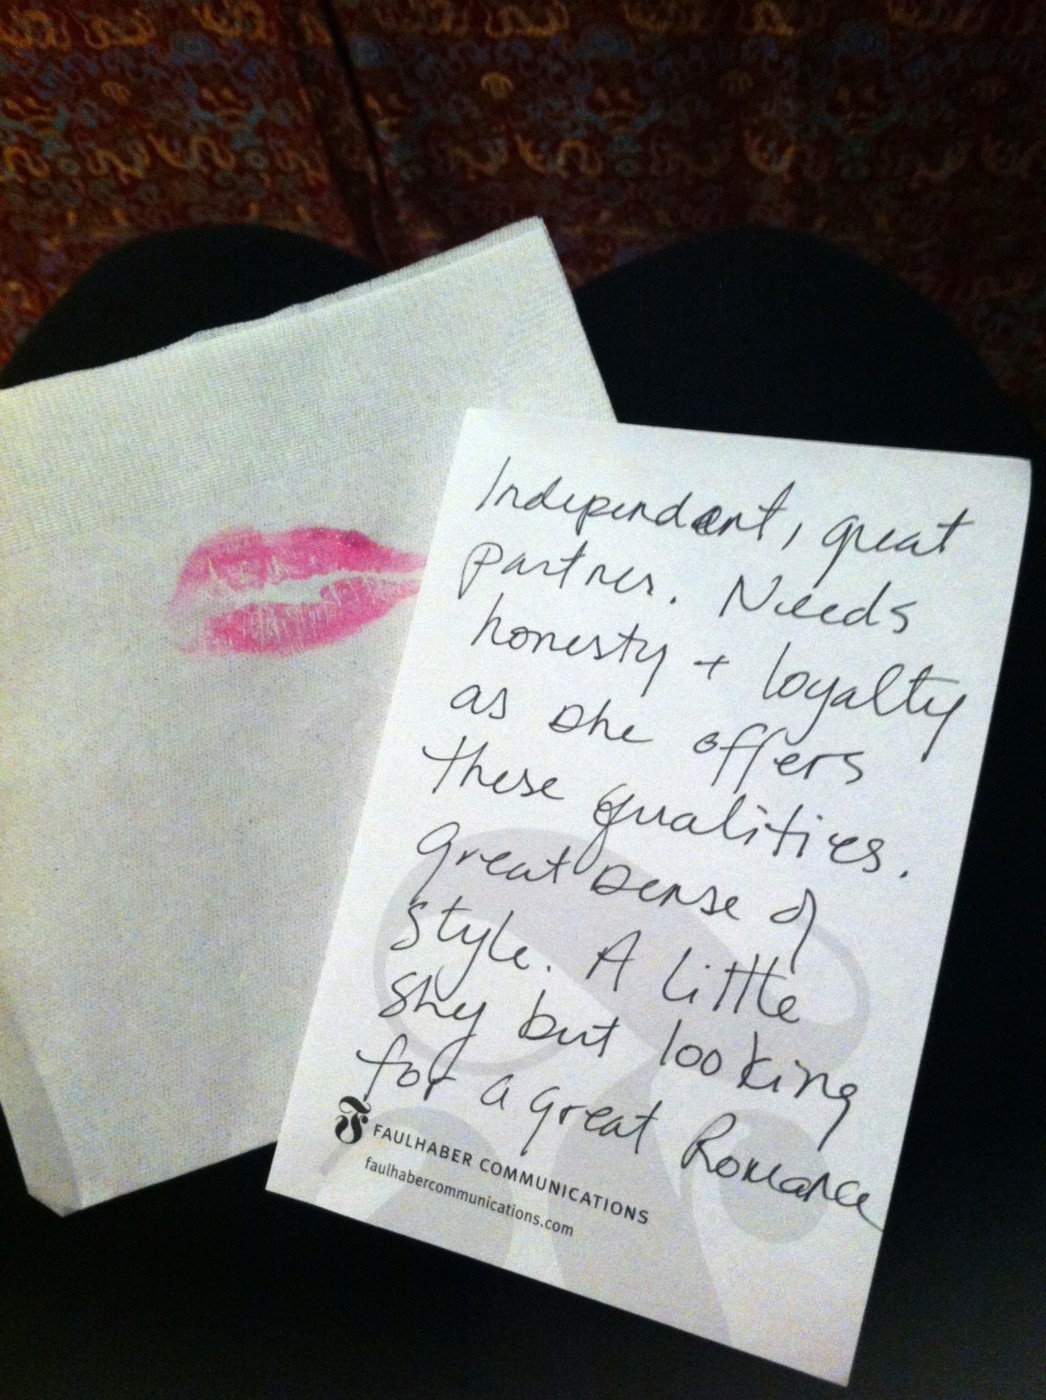 Independent, great
partner. Needs
honesty + loyalty
as she offers
these qualities.
great sense of
style. A little
shy but looking
for a great Romance
F FAULHABER COMMUNICATIONS
faulhabercommunications.com